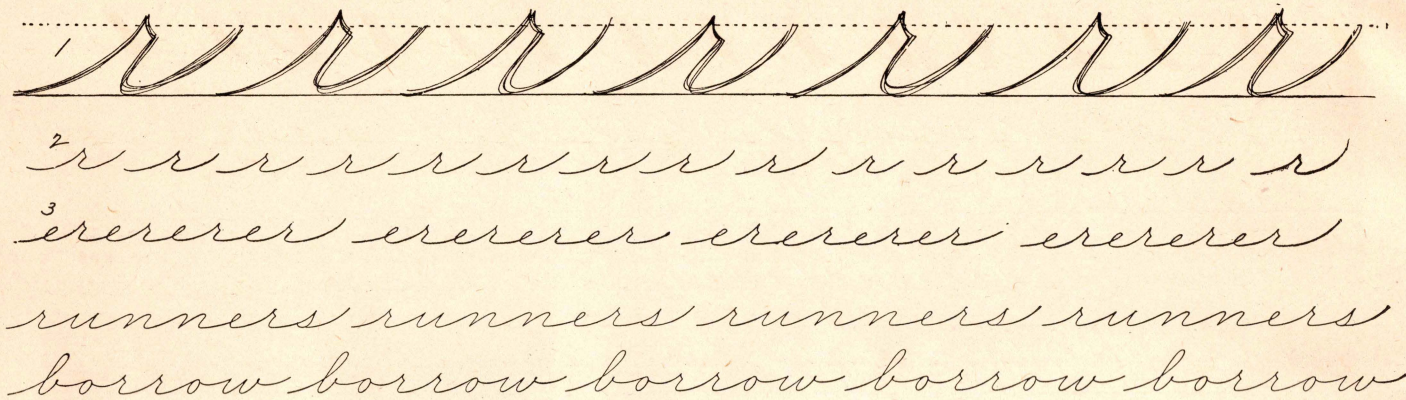 1 r r r r r r r
2 r r r r r r r r r r r r r r r
3 erererer erererer erererer erererer
runners runners runners runners
borrow borrow borrow borrow borrow